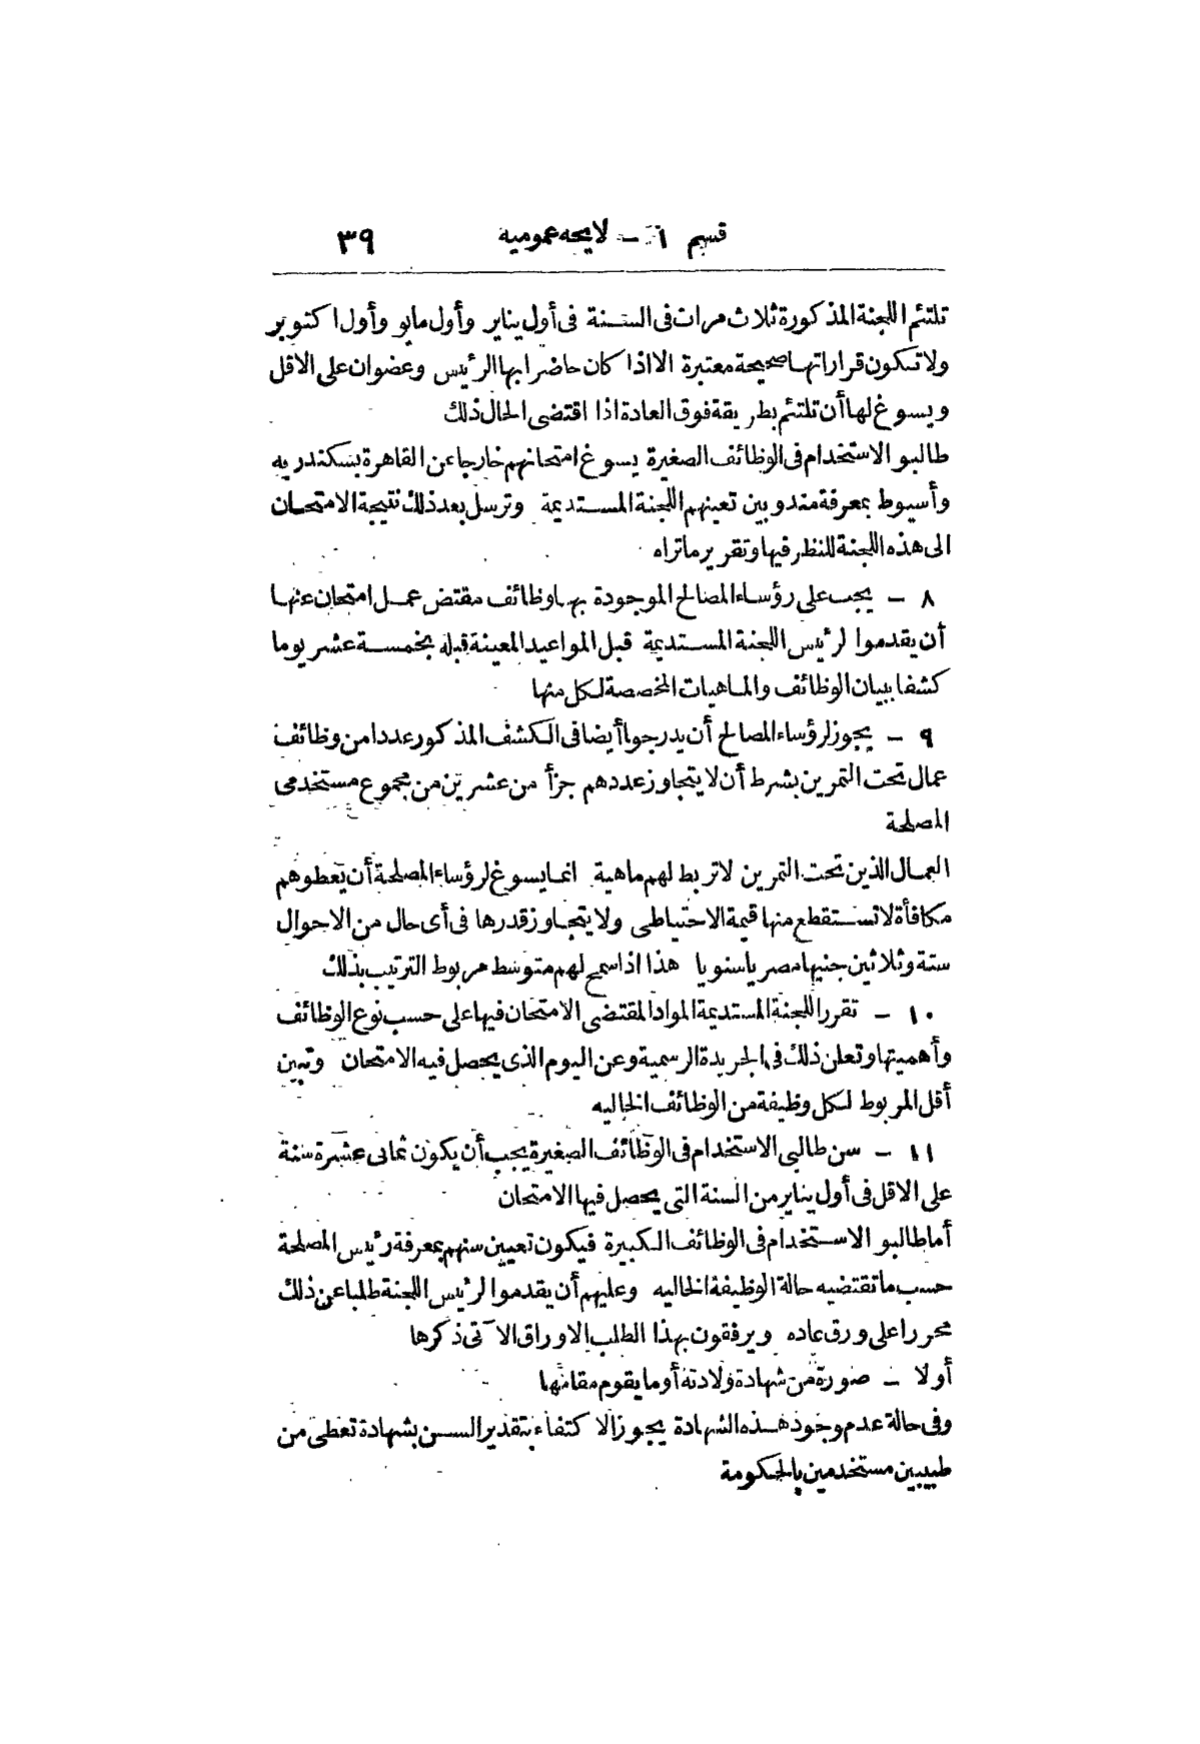 قسم ١ - لايحه عمومية ٣٩
تلتئم اللجنة المذكورة ثلاث مرات فى السنة فى أول يناير وأول مايو وأول اكتوبر
ولا تكون قراراتها صحيحة معتبرة الا اذا كان حاضرا بها الرئيس وعضوان على الاقل
ويسوغ لها أن تلتئم بطريقة فوق العادة اذا اقتضى الحال ذلك
طالبو الاستخدام فى الوظائف الصغيرة يسوغ امتحانهم خارجا عن القاهرة بسكندريه
وأسيوط بمعرفة مندوبين تعينهم اللجنة المستديمة وترسل بعد ذلك نتيجة الامتحان
الى هذه اللجنة للنظر فيها وتقرير ماتراه
٨ - يجب على رؤساء المصالح الموجودة بها وظائف مقتض عمل امتحان عنها
أن يقدموا لرئيس اللجنة المستديمة قبل المواعيد المعينة قبله بخمسة عشر يوما
كشفا ببيان الوظائف والماهيات المخصصة لكل منها
٩ - يجوز لرؤساء المصالح أن يدرجوا أيضا فى الكشف المذكور عددا من وظائف
عمال تحت التمرين بشرط أن لا يتجاوز عددهم جزأ من عشرين من مجموع مستخدمى
المصلحة
العمال الذين تحت التمرين لا تربط لهم ماهية انما يسوغ لرؤساء المصلحة أن يعطوهم
مكافأة لا تستقطع منها قيمة الاحتياطى ولا يتجاوز قدرها فى أى حال من الاحوال
ستة وثلاثين جنيها مصريا سنويا هذا اذا سمح لهم متوسط مربوط الترتيب بذلك
١٠ - تقرر اللجنة المستديمة المواد المقتضى الامتحان فيها على حسب نوع الوظائف
وأهميتها وتعلن ذلك فى الجريدة الرسمية وعن اليوم الذى يحصل فيه الامتحان وتبين
أقل المربوط لكل وظيفة من الوظائف الخاليه
١١ - سن طالبى الاستخدام فى الوظائف الصغيرة يجب أن يكون ثمانى عشرة سنة
على الاقل فى أول يناير من السنة التى يحصل فيها الامتحان
أما طالبو الاستخدام فى الوظائف الكبيرة فيكون تعيين سنهم بمعرفة رئيس المصلحة
حسب ماتقتضيه حالة الوظيفة الخاليه وعليهم أن يقدموا لرئيس اللجنة طلبا عن ذلك
محررا على ورق عاده ويرفقون بهذا الطلب الاوراق الآتى ذكرها
أولا - صورة من شهادة ولادته أو مايقوم مقامها
وفى حالة عدم وجود هذه الشهادة يجوز الاكتفاء بتقدير السن بشهادة تعطى من
طبيبين مستخدمين بالحكومة